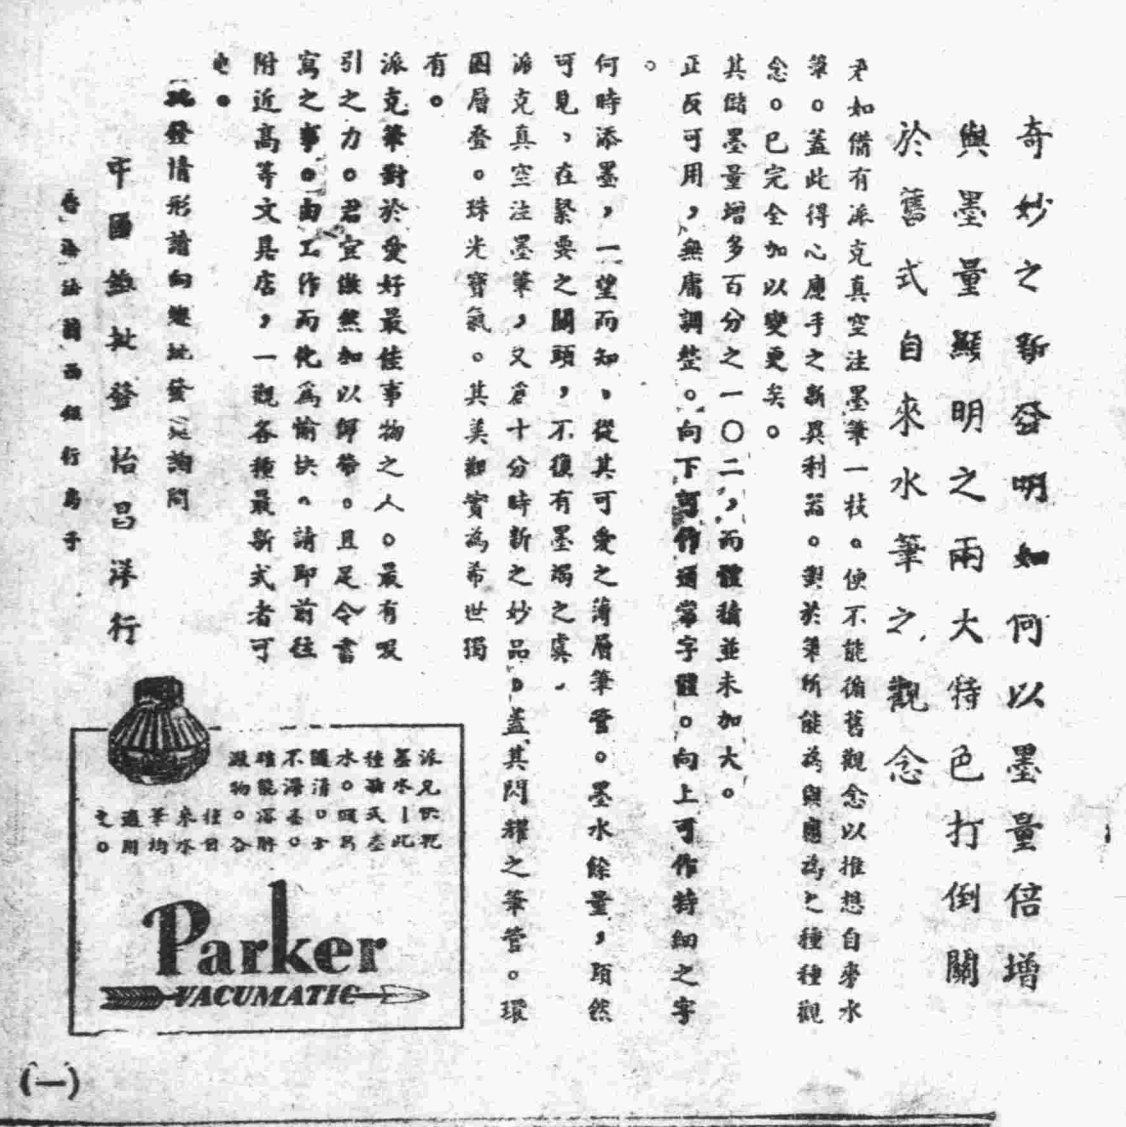 奇妙之新發明如何以墨量倍增
與墨量顯明之兩大特色打倒關
於舊式自來水筆之觀念
君如備有派克真空注墨筆一枝。便不能循舊觀念以推想自來水
筆。蓋此得心應手之新異利器。對於筆所能為與應為之種種觀
念。已完全加以變更矣。
其儲墨量增多百分之一〇二，而體積並未加大。
正反可用，無庸調整。向下寫作通常字體。向上可作特細之字
。
何時添墨，一望而知，從其可愛之薄層筆管。墨水餘量，瑣然
可見，在緊要之關頭，不復有墨竭之虞，
派克真空注墨筆，又為十分時新之妙品，蓋其閃耀之筆管。環
圈層叠。珠光寶氣。其美觀實為希世獨
有。
派克筆對於愛好最佳事物之人。最有吸
引之力。君宜傲然加以師帶。且足令書
寫之事。由工作而化為愉快。請即前往
附近高等文具店，一觀各種最新式者可
也。
批發情形請向總批發處詢問
中國總批發怡昌洋行
香港法蘭西銀行房子
派克快乾
墨水—此
種
水。
隨清。
不
能溶解
澱物。各
往日
來水
筆均
適用
之。
Parker
VACUMATIC
(一)